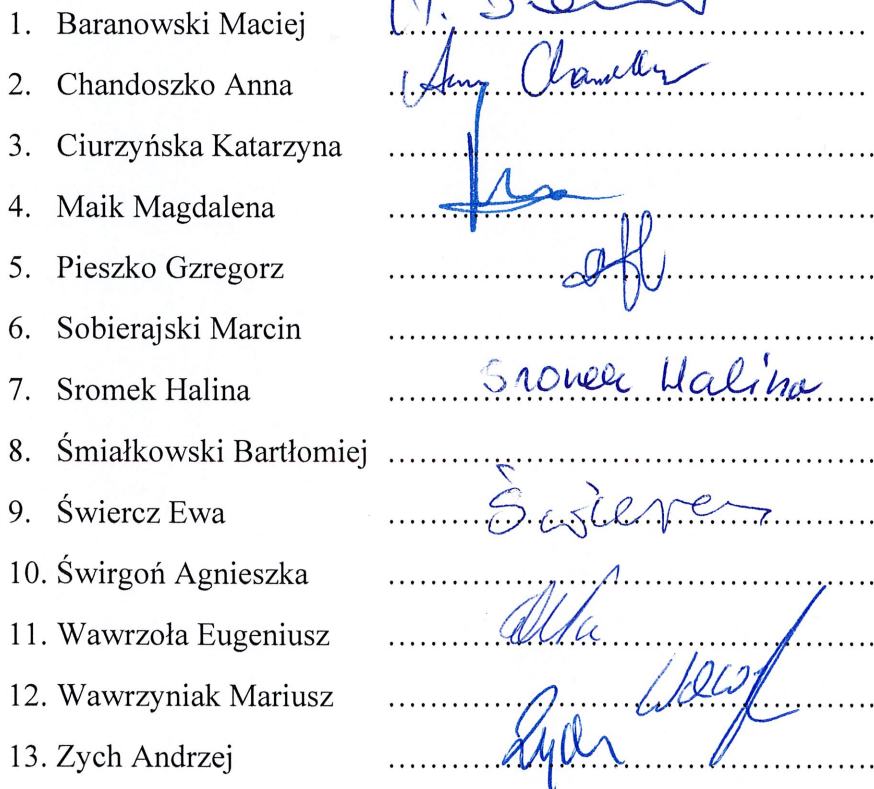 1. Baranowski Maciej ........................................
2. Chandoszko Anna ........................................
3. Ciurzyńska Katarzyna ........................................
4. Maik Magdalena ........................................
5. Pieszko Gzregorz ........................................
6. Sobierajski Marcin ........................................
7. Sromek Halina Sromek Halina
8. Śmiałkowski Bartłomiej ........................................
9. Świercz Ewa Świercz
10. Świrgoń Agnieszka ........................................
11. Wawrzoła Eugeniusz ........................................
12. Wawrzyniak Mariusz ........................................
13. Zych Andrzej Zych